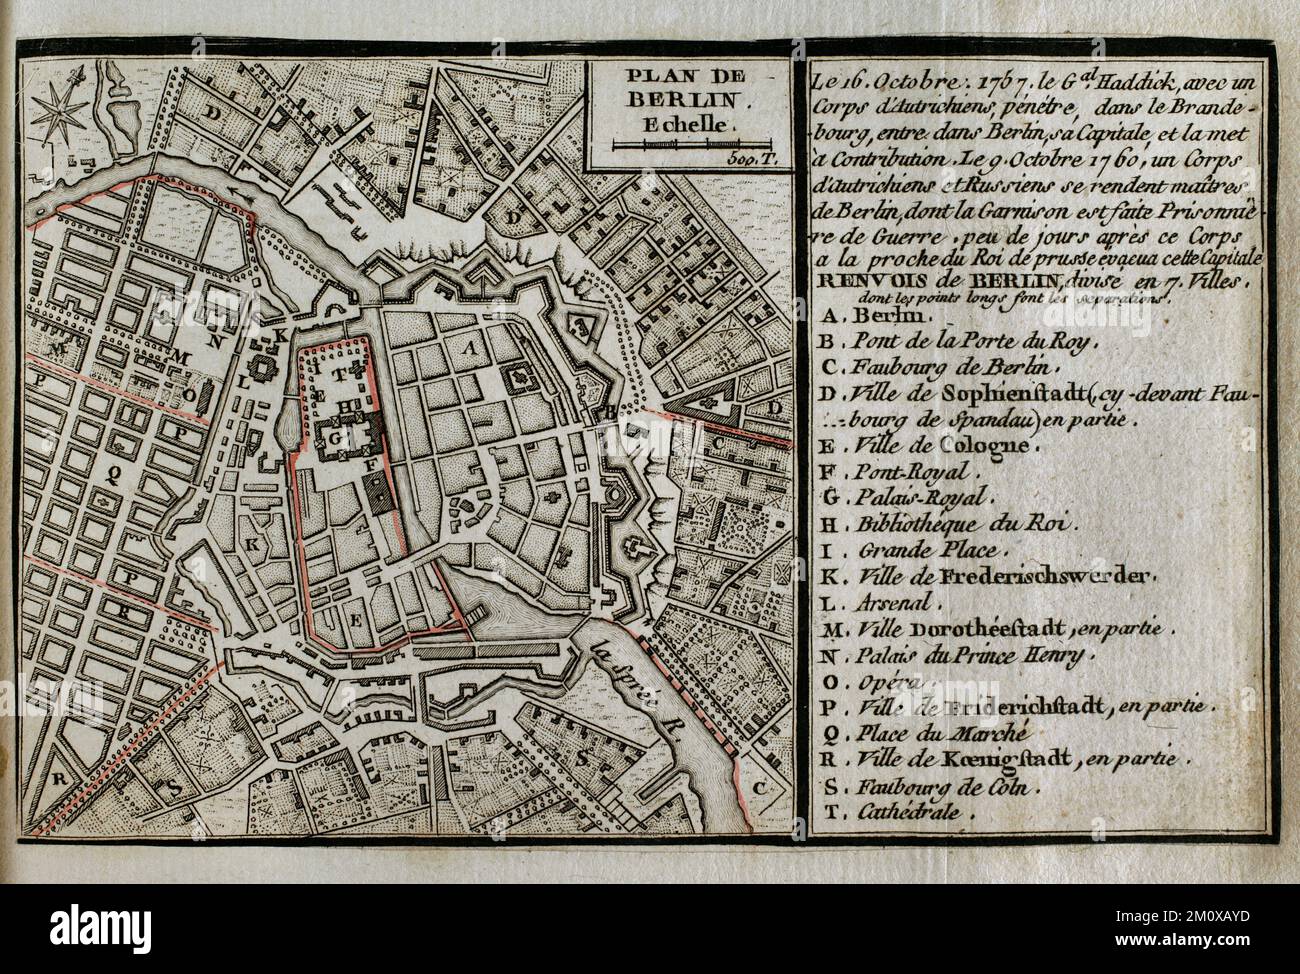 PLAN DE
BERLIN.
Echelle.
500. T.
Le 16. Octobre. 1757. le G.al Haddick, avec un
Corps d'Autrichiens, pénétre, dans le Brande-
bourg, entre dans Berlin, sa Capitale, et la met
à Contribution. Le 9. Octobre 1760, un Corps
d'Autrichiens et Russiens se rendent maîtres
de Berlin, dont la Garnison est faite Prisonniè-
re de Guerre, peu de jours après ce Corps
a la proche du Roi de prusse évacua cette Capitale
RENVOIS de BERLIN, divisé en 7. Villes.
dont les points longs sont les separations.
A. Berlin.
B. Pont de la Porte du Roy.
C. Faubourg de Berlin.
D. Ville de Sophienstadt (cy-devant Fau-
bourg de Spandau) en partie.
E. Ville de Cologne.
F. Pont-Royal.
G. Palais-Royal.
H. Bibliothéque du Roi.
I. Grande Place.
K. Ville de Frederischswerder.
L. Arsenal.
M. Ville Dorothéestadt, en partie.
N. Palais du Prince Henry.
O. Opéra.
P. Ville de Friderichstadt, en partie.
Q. Place du Marché
R. Ville de Kœnigstadt, en partie.
S. Faubourg de Coln.
T. Cathédrale.
D
D
D
A
B
C
K
N
M
M
L
O
P
P
Q
I
T
E
H
G
F
K
E
P
R
R
S
S
C
la Sprée R.
alamy
Image ID: 2M0XAYD
www.alamy.com